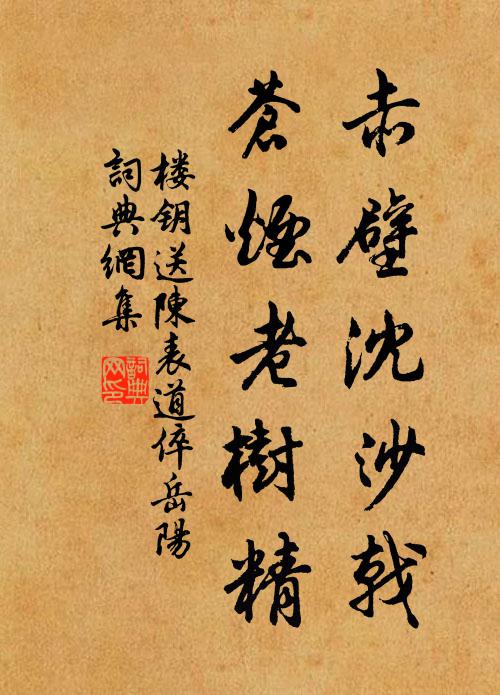 赤壁沈沙戟
蒼煙老樹精
楼钥送陳表道倅岳陽
詞典網集
詞典网印